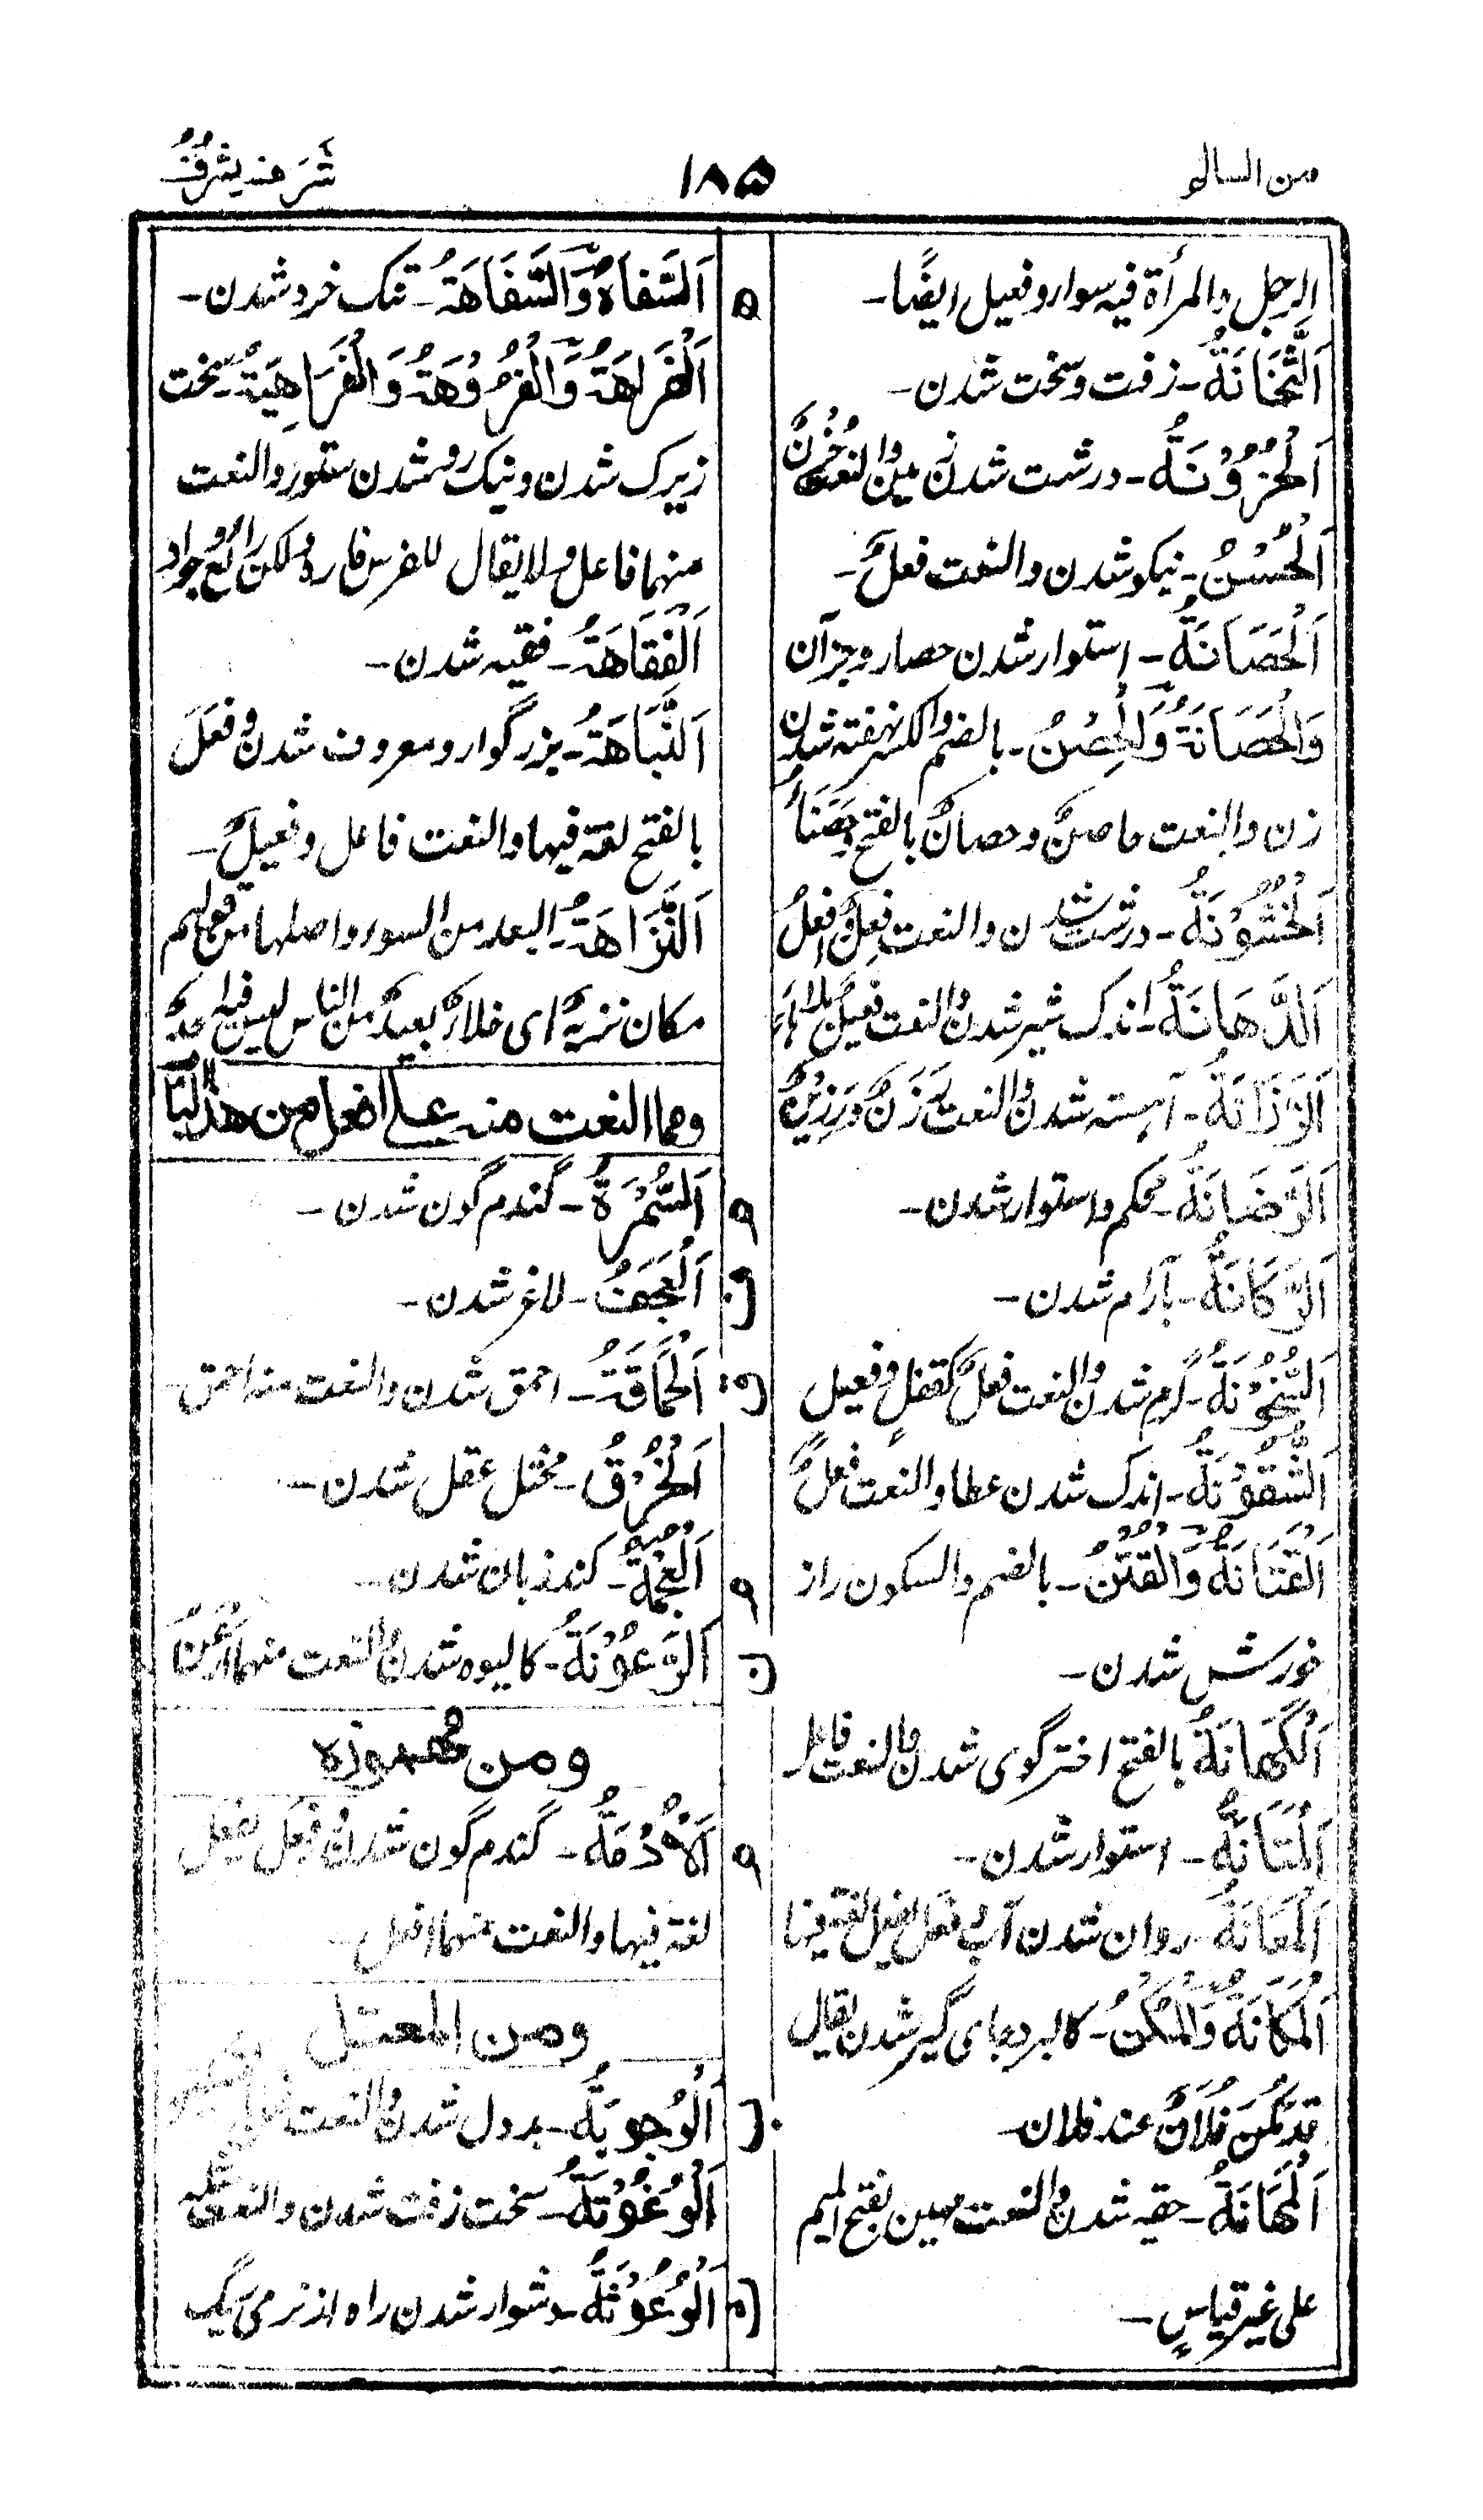 من السالم
۱۸۵
شَرُف يشرُفُ
الرجل والمرأة فيه سواء وفعيل ايضًا۔
اَلثَّخَانَةُ۔ زفت وسخت شدن۔
اَلْحُزُوْنَةُ۔ درشت شدن زمین والنعت حُزْنٌ
اَلْحُسْنُ۔ نیکو شدن والنعت فعلٌ۔
اَلْحَصَانَةُ۔ استوار شدن حصار وجز آن
وَالْحَصَانَةُ وَالْحُِصْنُ۔ بالضم والکسر نهفته شدن
زن والنعت حاصنٌ وحصانٌ بالفتح وحَصْنَاءُ
اَلْخُشُوْنَةُ۔ درشت شدن والنعت فعِلٌ وافعلُ
اَلدَّهَانَةُ۔ اندک شیر شدن والنعت فعیلٌ بلا هاءٍ
اَلرَّزَانَةُ۔ آهسته شدن والنعت رَزَنٌ ورَزِیْنٌ
اَلرَّصَانَةُ۔ محکم واستوار شدن۔
اَلرَّكَانَةُ۔ آرام شدن۔
اَلسُّخُوْنَةُ۔ گرم شدن والنعت فعلٌ کقفلٍ وفعیل
اَلشُّقُوْنَةُ۔ اندک شدن عطا والنعت فعلٌ
اَلْقَتَانَةُ وَالْقُتْنُ۔ بالضم والسکون زار
خورش شدن۔
اَلْكَهَانَةُ بالفتح اختر گوی شدن والنعت فاعل
اَلْمَتَانَةُ۔ استوار شدن۔
اَلْمَعَانَةُ۔ روان شدن آب وفعَل یفعَل لغة فیها
اَلْمَكَانَةُ وَالْمُكْنُ۔ کالبرد جای گیر شدن یقال
قد مَكُنَ فُلَانٌ عند فلان۔
اَلْمَهَانَةُ۔ حقیر شدن والنعت مهین بفتح المیم
علی غیر قیاسٍ۔
ه اَلسَّفَاهُ وَالسَّفَاهَةُ۔ تنک خرد شدن۔
اَلْفَرَاهَةُ وَالْفُرُوْهَةُ وَالْفَرَاهِيَةُ۔ سخت
زیرک شدن ونیک رو شدن ستور والنعت
منهما فاعل ولا یقال للفرس فاره ولکن رائع وجواد
اَلْفَقَاهَةُ۔ فقیه شدن۔
اَلنَّبَاهَةُ۔ بزرگوار ومعروف شدن وفعَلَ
بالفتح لغة فیها والنعت فاعل وفعیلٌ۔
اَلنَّزَاهَةُ۔ البعد من السوء واصلها من قولهم
مکان نزیهٌ ای خلاءٌ بعیدٌ من الناس لیس فیه احدٌ
ومما النعت منه علی افعل من هذا الباب
م اَلسُّمْرَةُ۔ گندم گون شدن۔
ف اَلْعَجَفُ۔ لاغر شدن۔
ق اَلْحَمَاقَةُ۔ احمق شدن والنعت منه احمق
اَلْخُرْقُ۔ مختل عقل شدن۔
م اَلْعُجْمَةُ۔ کند زبان شدن۔
ن اَلرُّعُوْنَةُ۔ کالیوه شدن والنعت منهما اَرْعَنُ
ومن مهموزه
م اَلْأُدْمَةُ۔ گندم گون شدن وفعِل یفعَل
لغة فیها والنعت منهما افعل۔
ومن المعتل
ب اَلْوُجُوْبَةُ۔ بددل شدن والنعت
اَلْوُغُوْبَةُ۔ سخت زفت شدن والنعت
ث اَلْوُعُوْثَةُ۔ دشوار شدن راه از نرمی ریگ